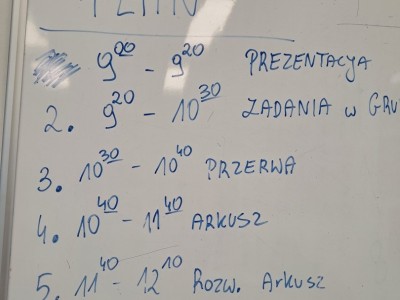 PLAN
9⁰⁰ - 9²⁰ PREZENTACJA
2. 9²⁰ - 10³⁰ ZADANIA w GRU
3. 10³⁰ - 10⁴⁰ PRZERWA
4. 10⁴⁰ - 11⁴⁰ ARKUSZ
5. 11⁴⁰ - 12¹⁰ Rozw. Arkusz